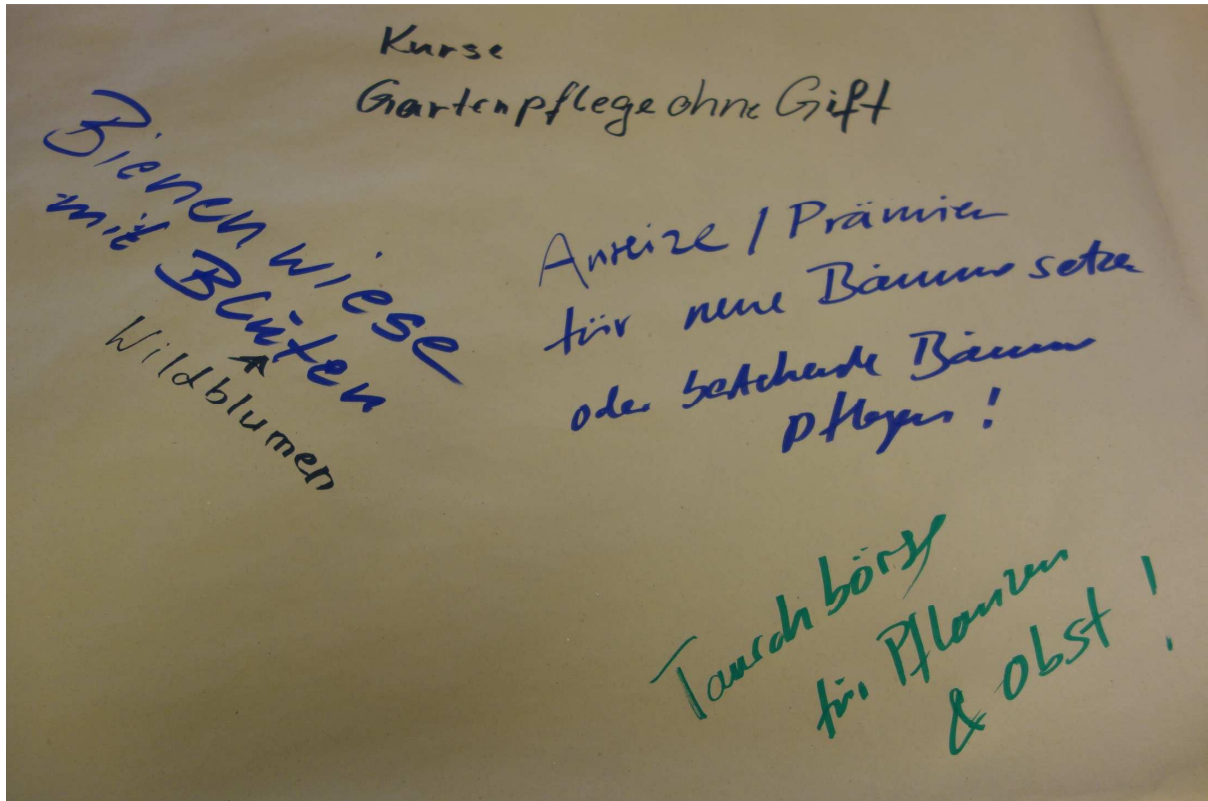 Kurse
Gartenpflege ohne Gift
Bienenwiese
mit Blüten
Wildblumen
Anreize / Prämien
für neue Bäume setzen
oder bestehende Bäume
pflegen!
Tauschbörse
für Pflanzen
& Obst!